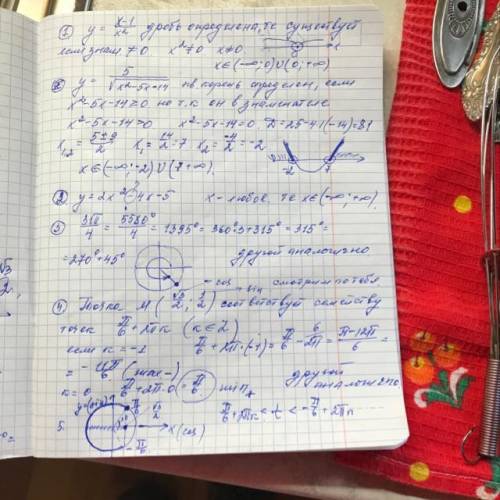 ① y = x-1/x² дробь определена, т.е. существует
если знам ≠ 0 x² ≠ 0 x ≠ 0
x∈(-∞;0)∪(0;+∞)
② y = 5/√(x²-5x-14) кв. корень определен, если
x²-5x-14≥0 но т.к он в знаменателе
x²-5x-14>0 x²-5x-14=0 D=25-4·1·(-14)=81
x₁,₂ = 5±9/2 x₁ = 14/2 = 7 x₂ = -4/2 = -2
-2 7
x∈(-∞;-2)∪(7+∞)
③ y=2x²-4x-5 x-любое те x∈(-∞;+∞)
③ 31π/4 = 5580°/4 = 1395° = 360°·3+315° = 315° =
=270°+45° другой аналогично
-cos sin смотрим по табл.
④ Точка M(√3/2; 1/2) соответствует семейству
точек π/6+2πk (k∈Z)
если k=-1 π/6+2π·(-1) = π/6-2π = π-12π/6 =
= -11π/6 (max-)
k=0 π/6+2π·0 = π/6 min+ другой аналогично
y(sin)
5. x(cos) -π/6
π/6+2πk < t < -π/6+2πk